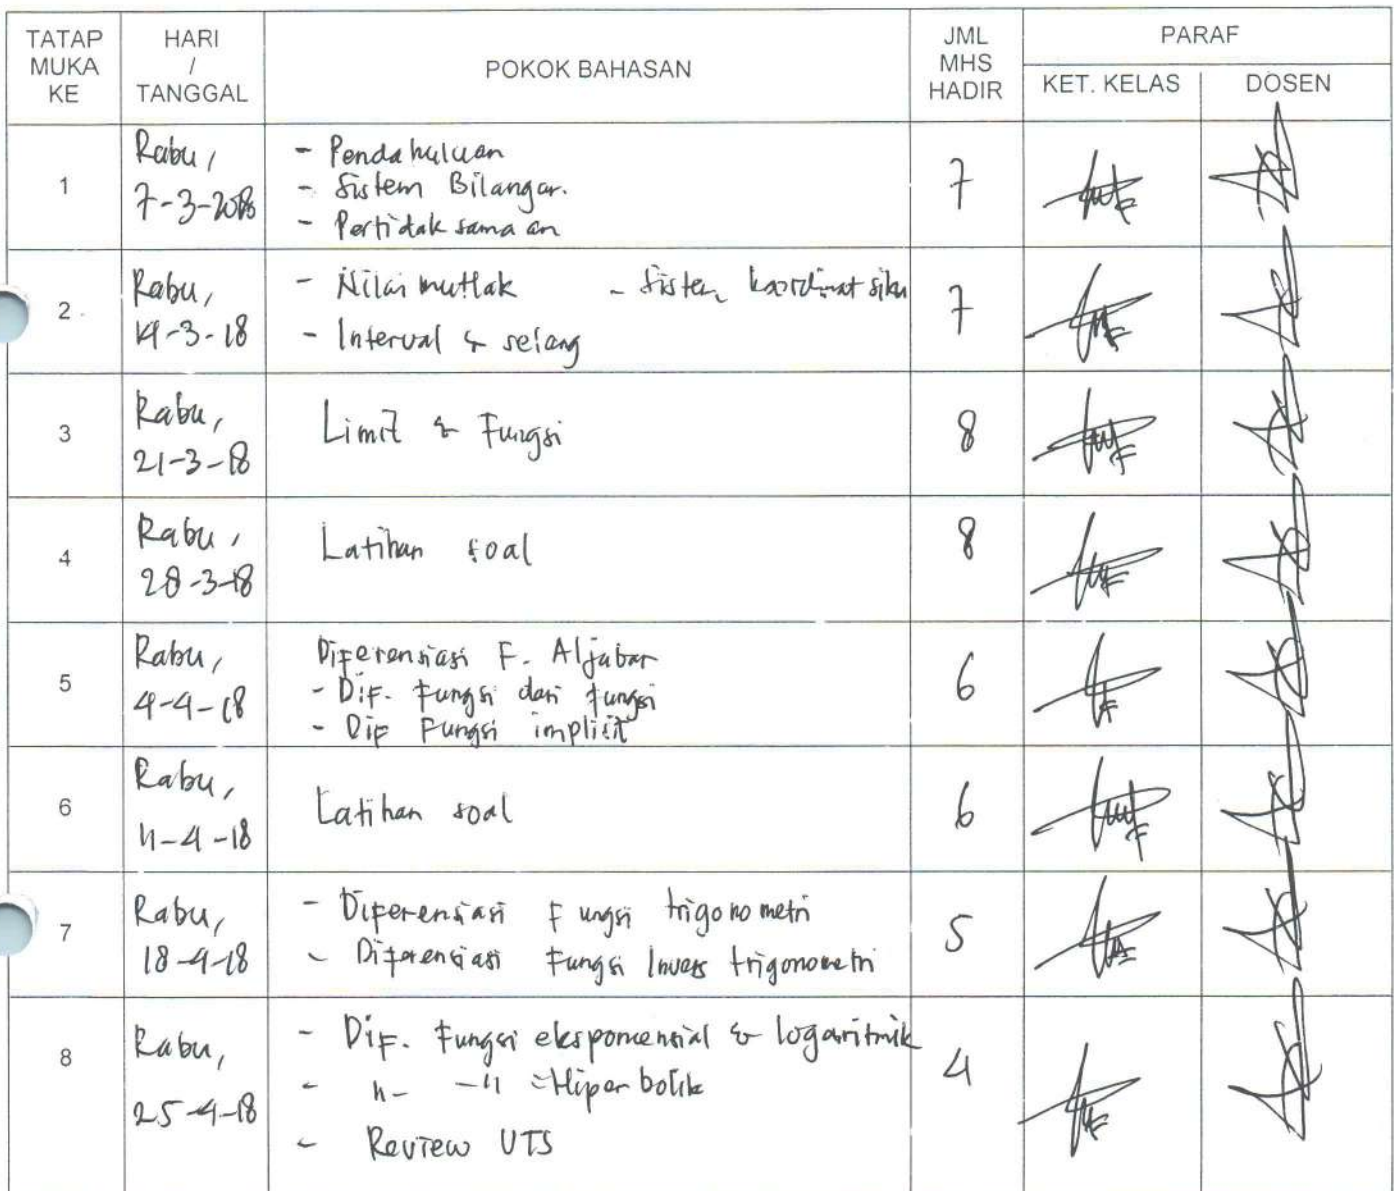 TATAP MUKA KE
HARI / TANGGAL
POKOK BAHASAN
JML MHS HADIR
PARAF
KET. KELAS
DOSEN
1
Rabu,
7-3-2018
- Pendahuluan
- Sistem Bilangan.
- Pertidaksamaan
7
2
Rabu,
14-3-18
- Nilai mutlak - Sistem koordinat siku
- Interval & selang
7
3
Rabu,
21-3-18
Limit & Fungsi
8
4
Rabu,
28-3-18
Latihan soal
8
5
Rabu,
4-4-18
Diferensiasi F. Aljabar
- Dif. Fungsi dari fungsi
- Dif Fungsi implisit
6
6
Rabu,
11-4-18
Latihan soal
6
7
Rabu,
18-4-18
- Diferensiasi Fungsi trigonometri
- Diferensiasi Fungsi Invers trigonometri
5
8
Rabu,
25-4-18
- Dif. Fungsi eksponensial & logaritmik
- 〃- -〃- Hiperbolik
- Review UTS
4